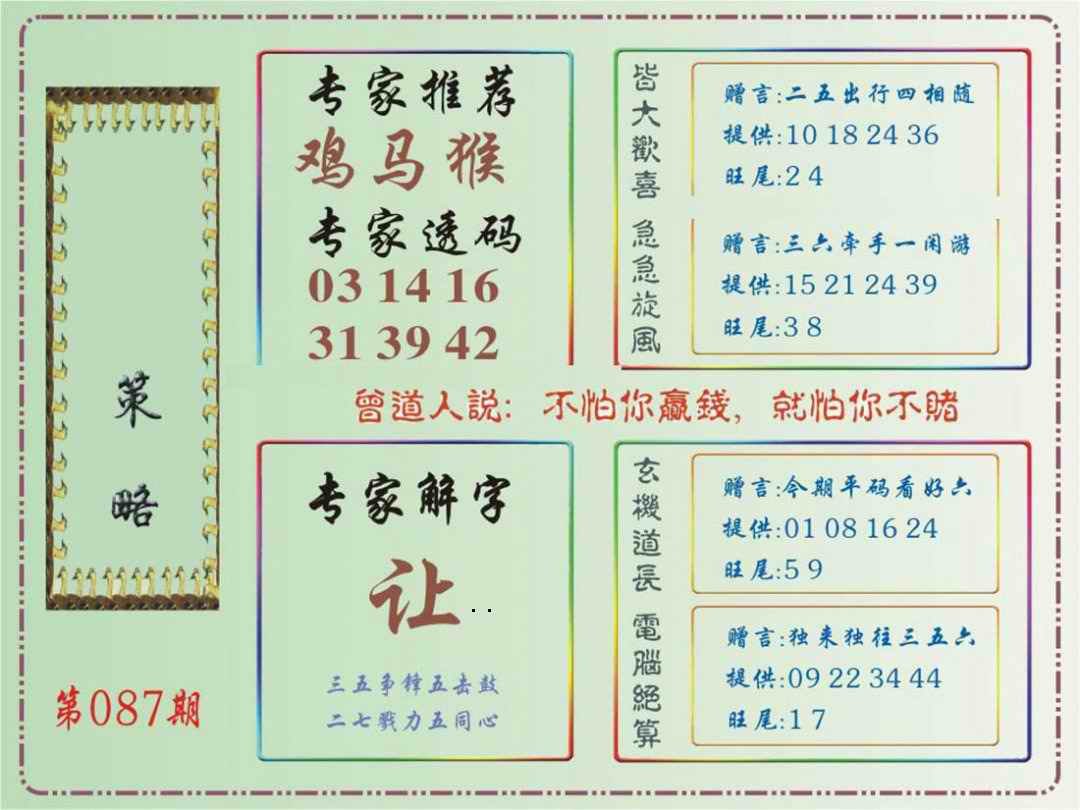 策略
第087期
专家推荐
鸡马猴
专家透码
03 14 16
31 39 42
皆大歡喜
赠言:二五出行四相随
提供:10 18 24 36
旺尾:2 4
急急旋风
赠言:三六牵手一闲游
提供:15 21 24 39
旺尾:3 8
曾道人説: 不怕你贏錢, 就怕你不賭
专家解字
让..
三五争锋五击鼓
二七戰力五同心
玄機道長
赠言:今期平码看好六
提供:01 08 16 24
旺尾:5 9
電腦絕算
赠言:独来独往三五六
提供:09 22 34 44
旺尾:1 7